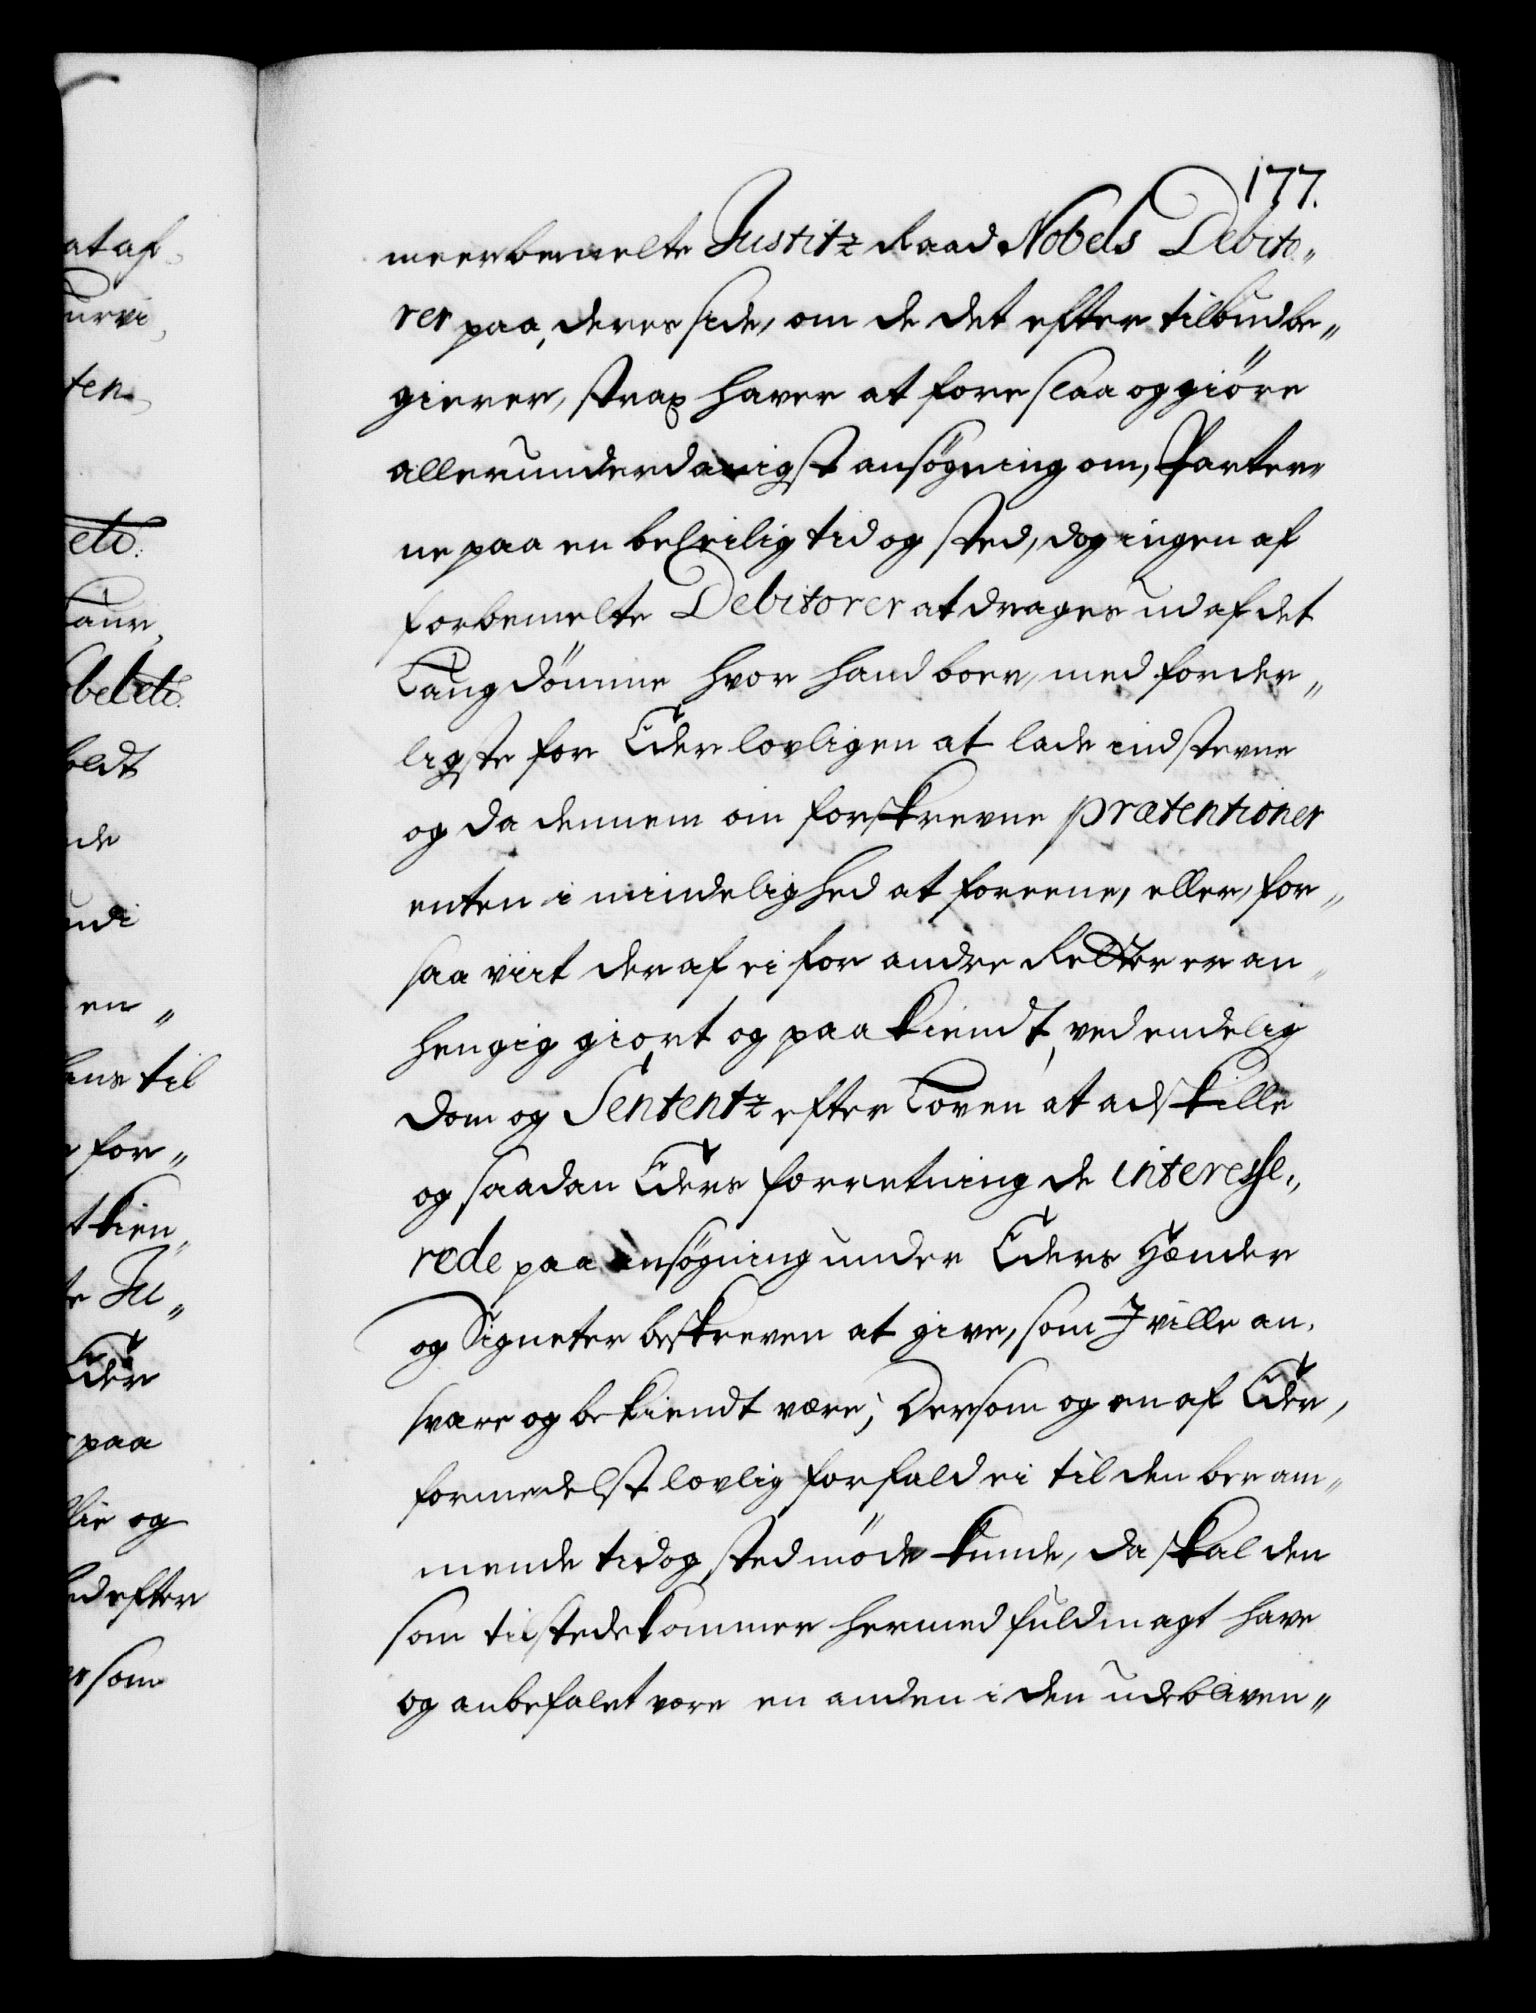 177.
meerbemelte Justitz Raad Nobels Debito„
rer paa, deres side, om de det efter tilbud be„
gierer, strax haver at foreslaa og giöre
allerunderdanigst ansögning om, Parter„
ne paa en beleilig tid og sted, dog ingen af
forbemelte Debitorer at drages ud af det
Laugdömme hvor hand boer, med forder„
ligste for Eder lovligen at lade indstevne
og da dennem om forskrevne prætentioner
enten i mindelighed at foreene, eller, for„
saa vit deraf ei for andre Retter er an„
hengig giort og paakiendt, ved endelig
Dom og Sententz efter Loven at adskille
og saadan Eders forretning de interesse„
rede paa ansögning under Eders Hænder
og Signeter beskreven at give, som I ville an„
svare og bekiendt være; Dersom og en af Eder,
formedelst lovlig forfald ei til den beram„
mende tid og sted möde kunde, da skal den
som tilstedekommer hermed fuldmagt have
og anbefalet være en anden i den udebliven„
at af„
urvi„
ten„
etc:
Laur„
obel etc.
holdt
nde
ndi
en„
ens til
for„
t kien„
te Ju„
Eder
paa
lie og
ed efter
er som